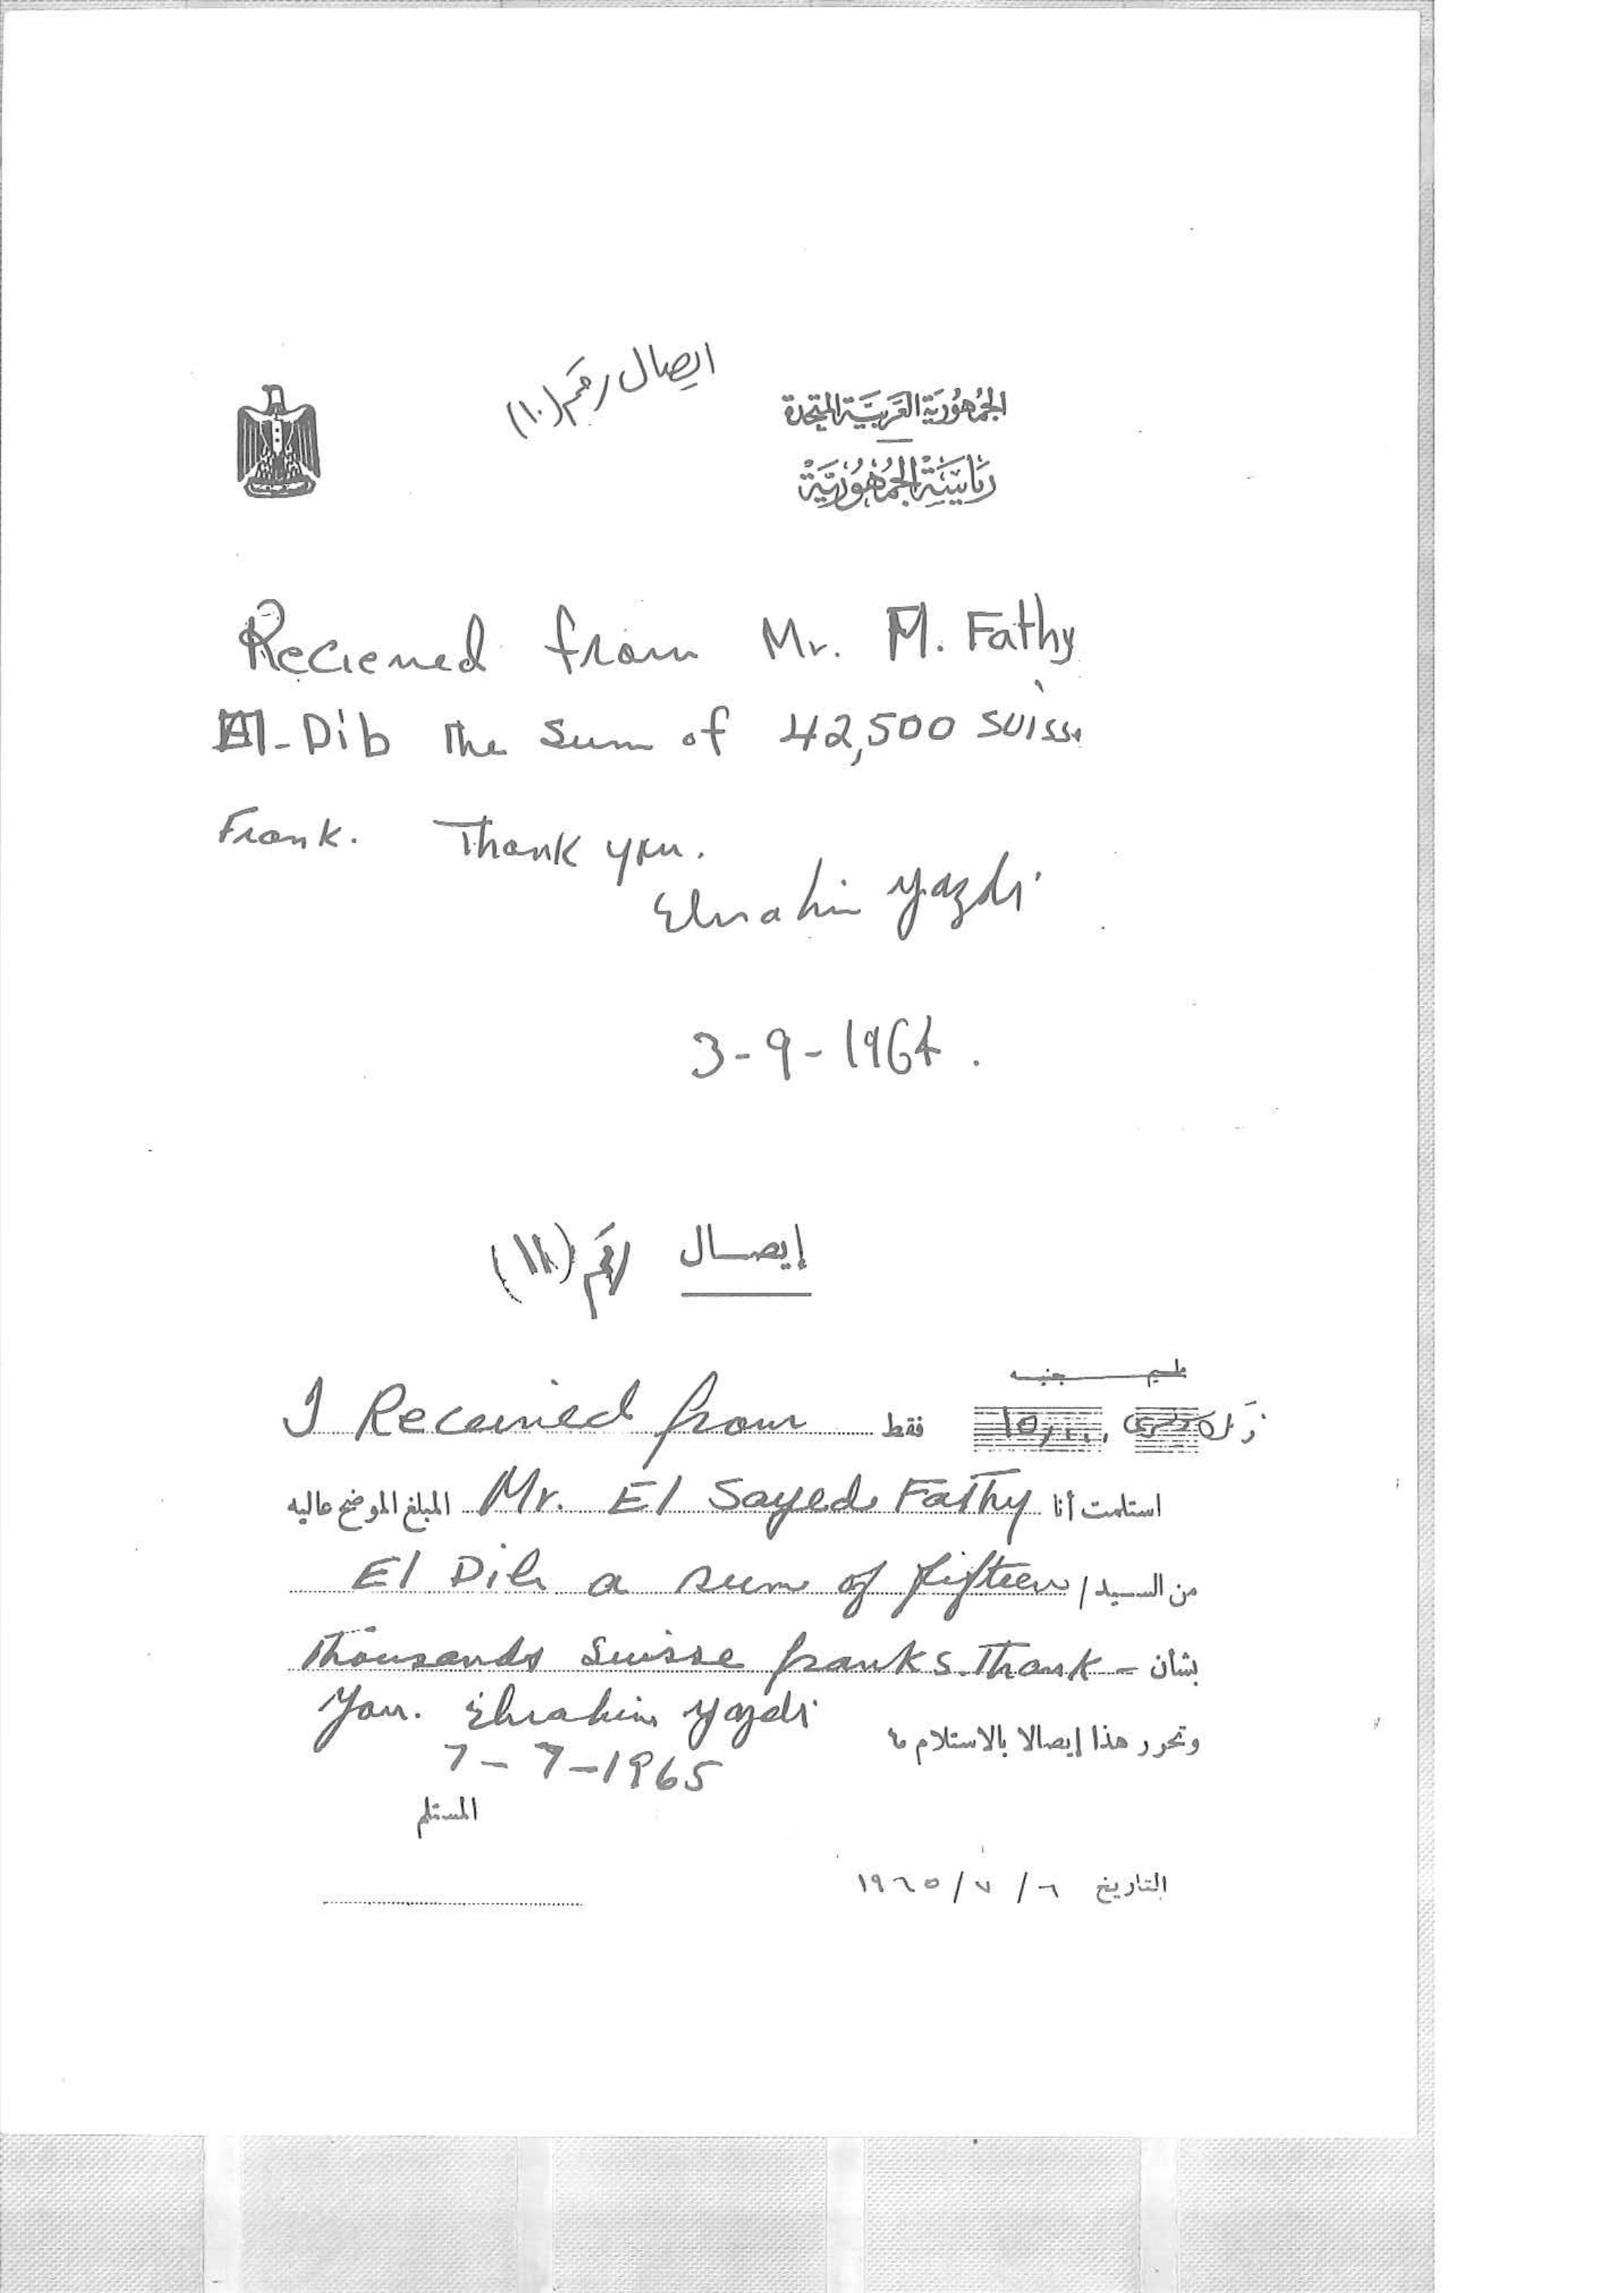 ايصال رقم (١٠)
الجمهورية العربية المتحدة
رياسة الجمهورية
Recieved from Mr. M. Fathy
El-Dib the sum of 42,500 Suisse
Frank. Thank you.
Ebrahim Yazdi
3-9-1964.
إيصال رقم (١١)
مليم جنيه
I Received from فقط ١٥,٠٠٠ فرنك سويسرى
استلمت أنا Mr. El Sayed Fathy المبلغ الموضح عاليه
من السيد / El Dib a sum of fifteen
بشأن Thousands Suisse franks. Thank-
You. Ebrahim Yazdi
وتحرر هذا إيصالا بالاستلام ؎
7-7-1965
المستلم
التاريخ ٦ / ٧ / ١٩٦٥